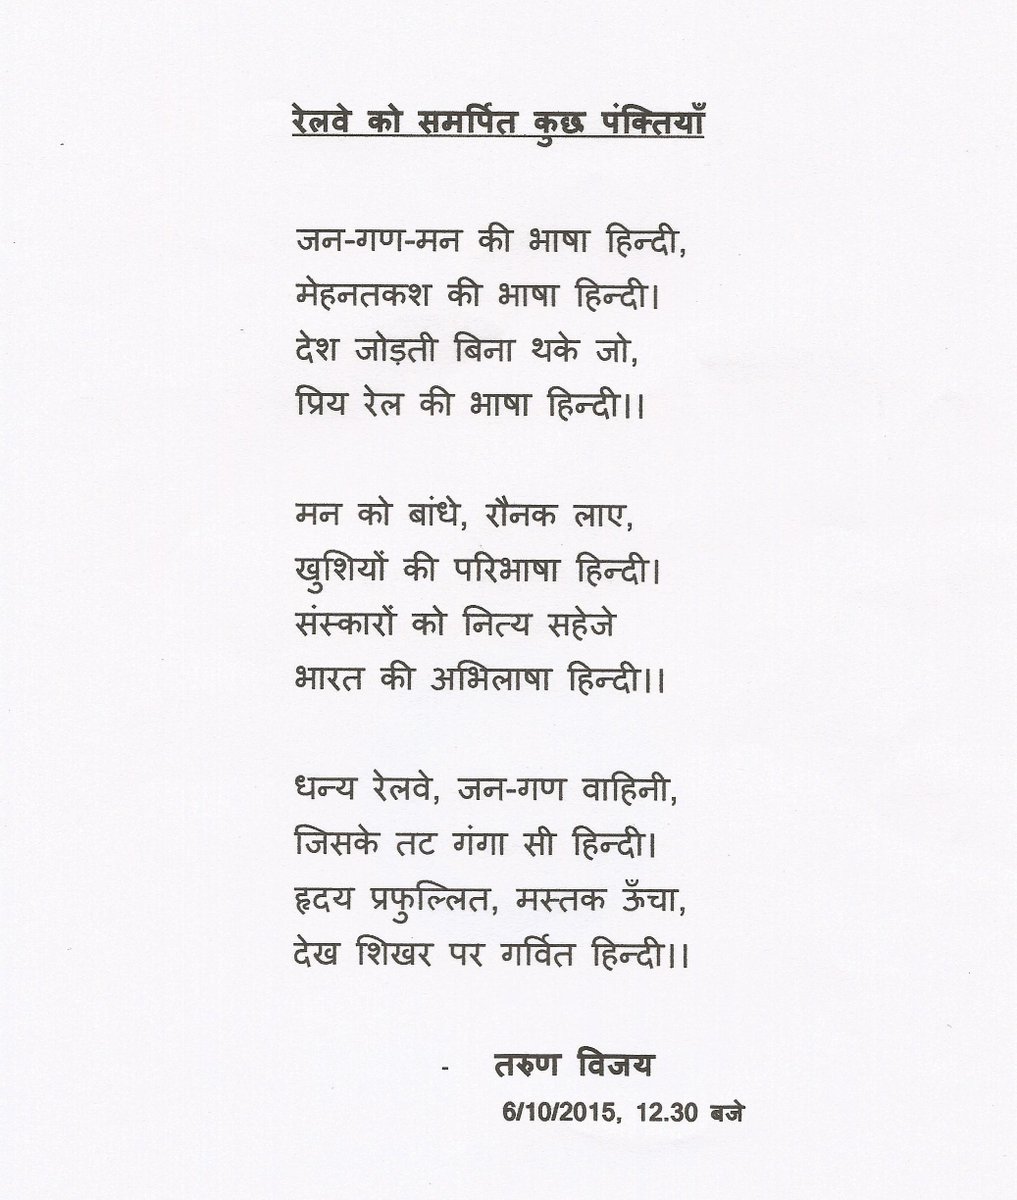 रेलवे को समर्पित कुछ पंक्तियाँ
जन-गण-मन की भाषा हिन्दी,
मेहनतकश की भाषा हिन्दी।
देश जोड़ती बिना थके जो,
प्रिय रेल की भाषा हिन्दी।।
मन को बांधे, रौनक लाए,
खुशियों की परिभाषा हिन्दी।
संस्कारों को नित्य सहेजे
भारत की अभिलाषा हिन्दी।।
धन्य रेलवे, जन-गण वाहिनी,
जिसके तट गंगा सी हिन्दी।
हृदय प्रफुल्लित, मस्तक ऊँचा,
देख शिखर पर गर्वित हिन्दी।।
- तरुण विजय
6/10/2015, 12.30 बजे